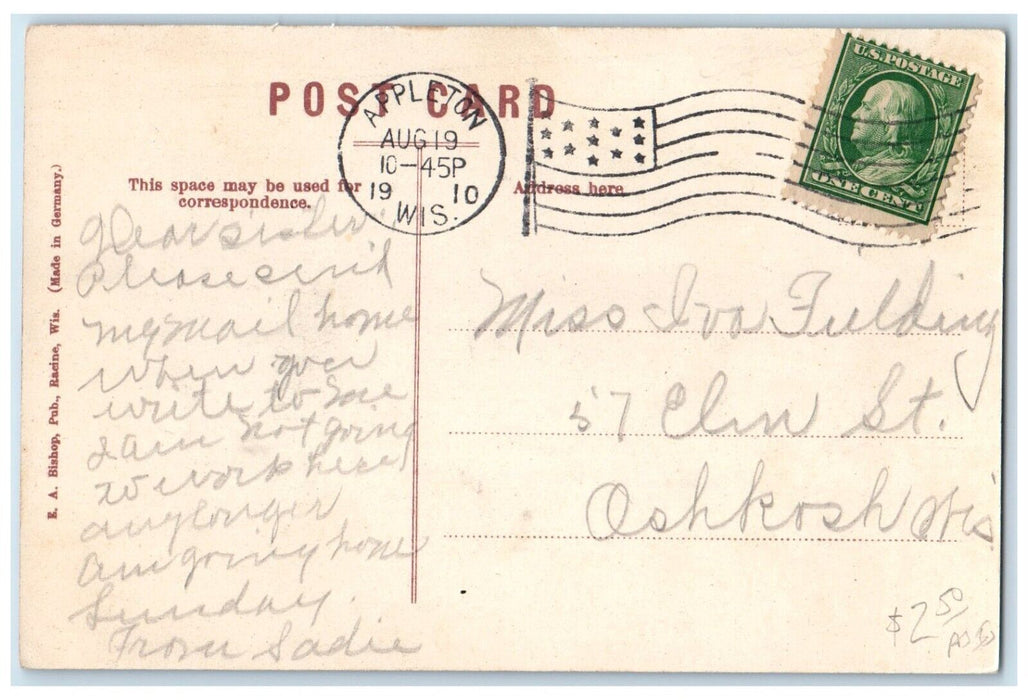 POST CARD
APPLETON
AUG 19
10-45P
19 10
WIS.
U.S. POSTAGE
ONE CENT
This space may be used for
correspondence.
Address here
E. A. Bishop, Pub., Racine, Wis. (Made in Germany.)
Dear sister
Please send
my mail home
when you
write to me
I am not going
to work here
any longer
am going home
Sunday.
From Sadie
Miss Iva Fulding
57 Elm St.
Oshkosh Wis
$2 50